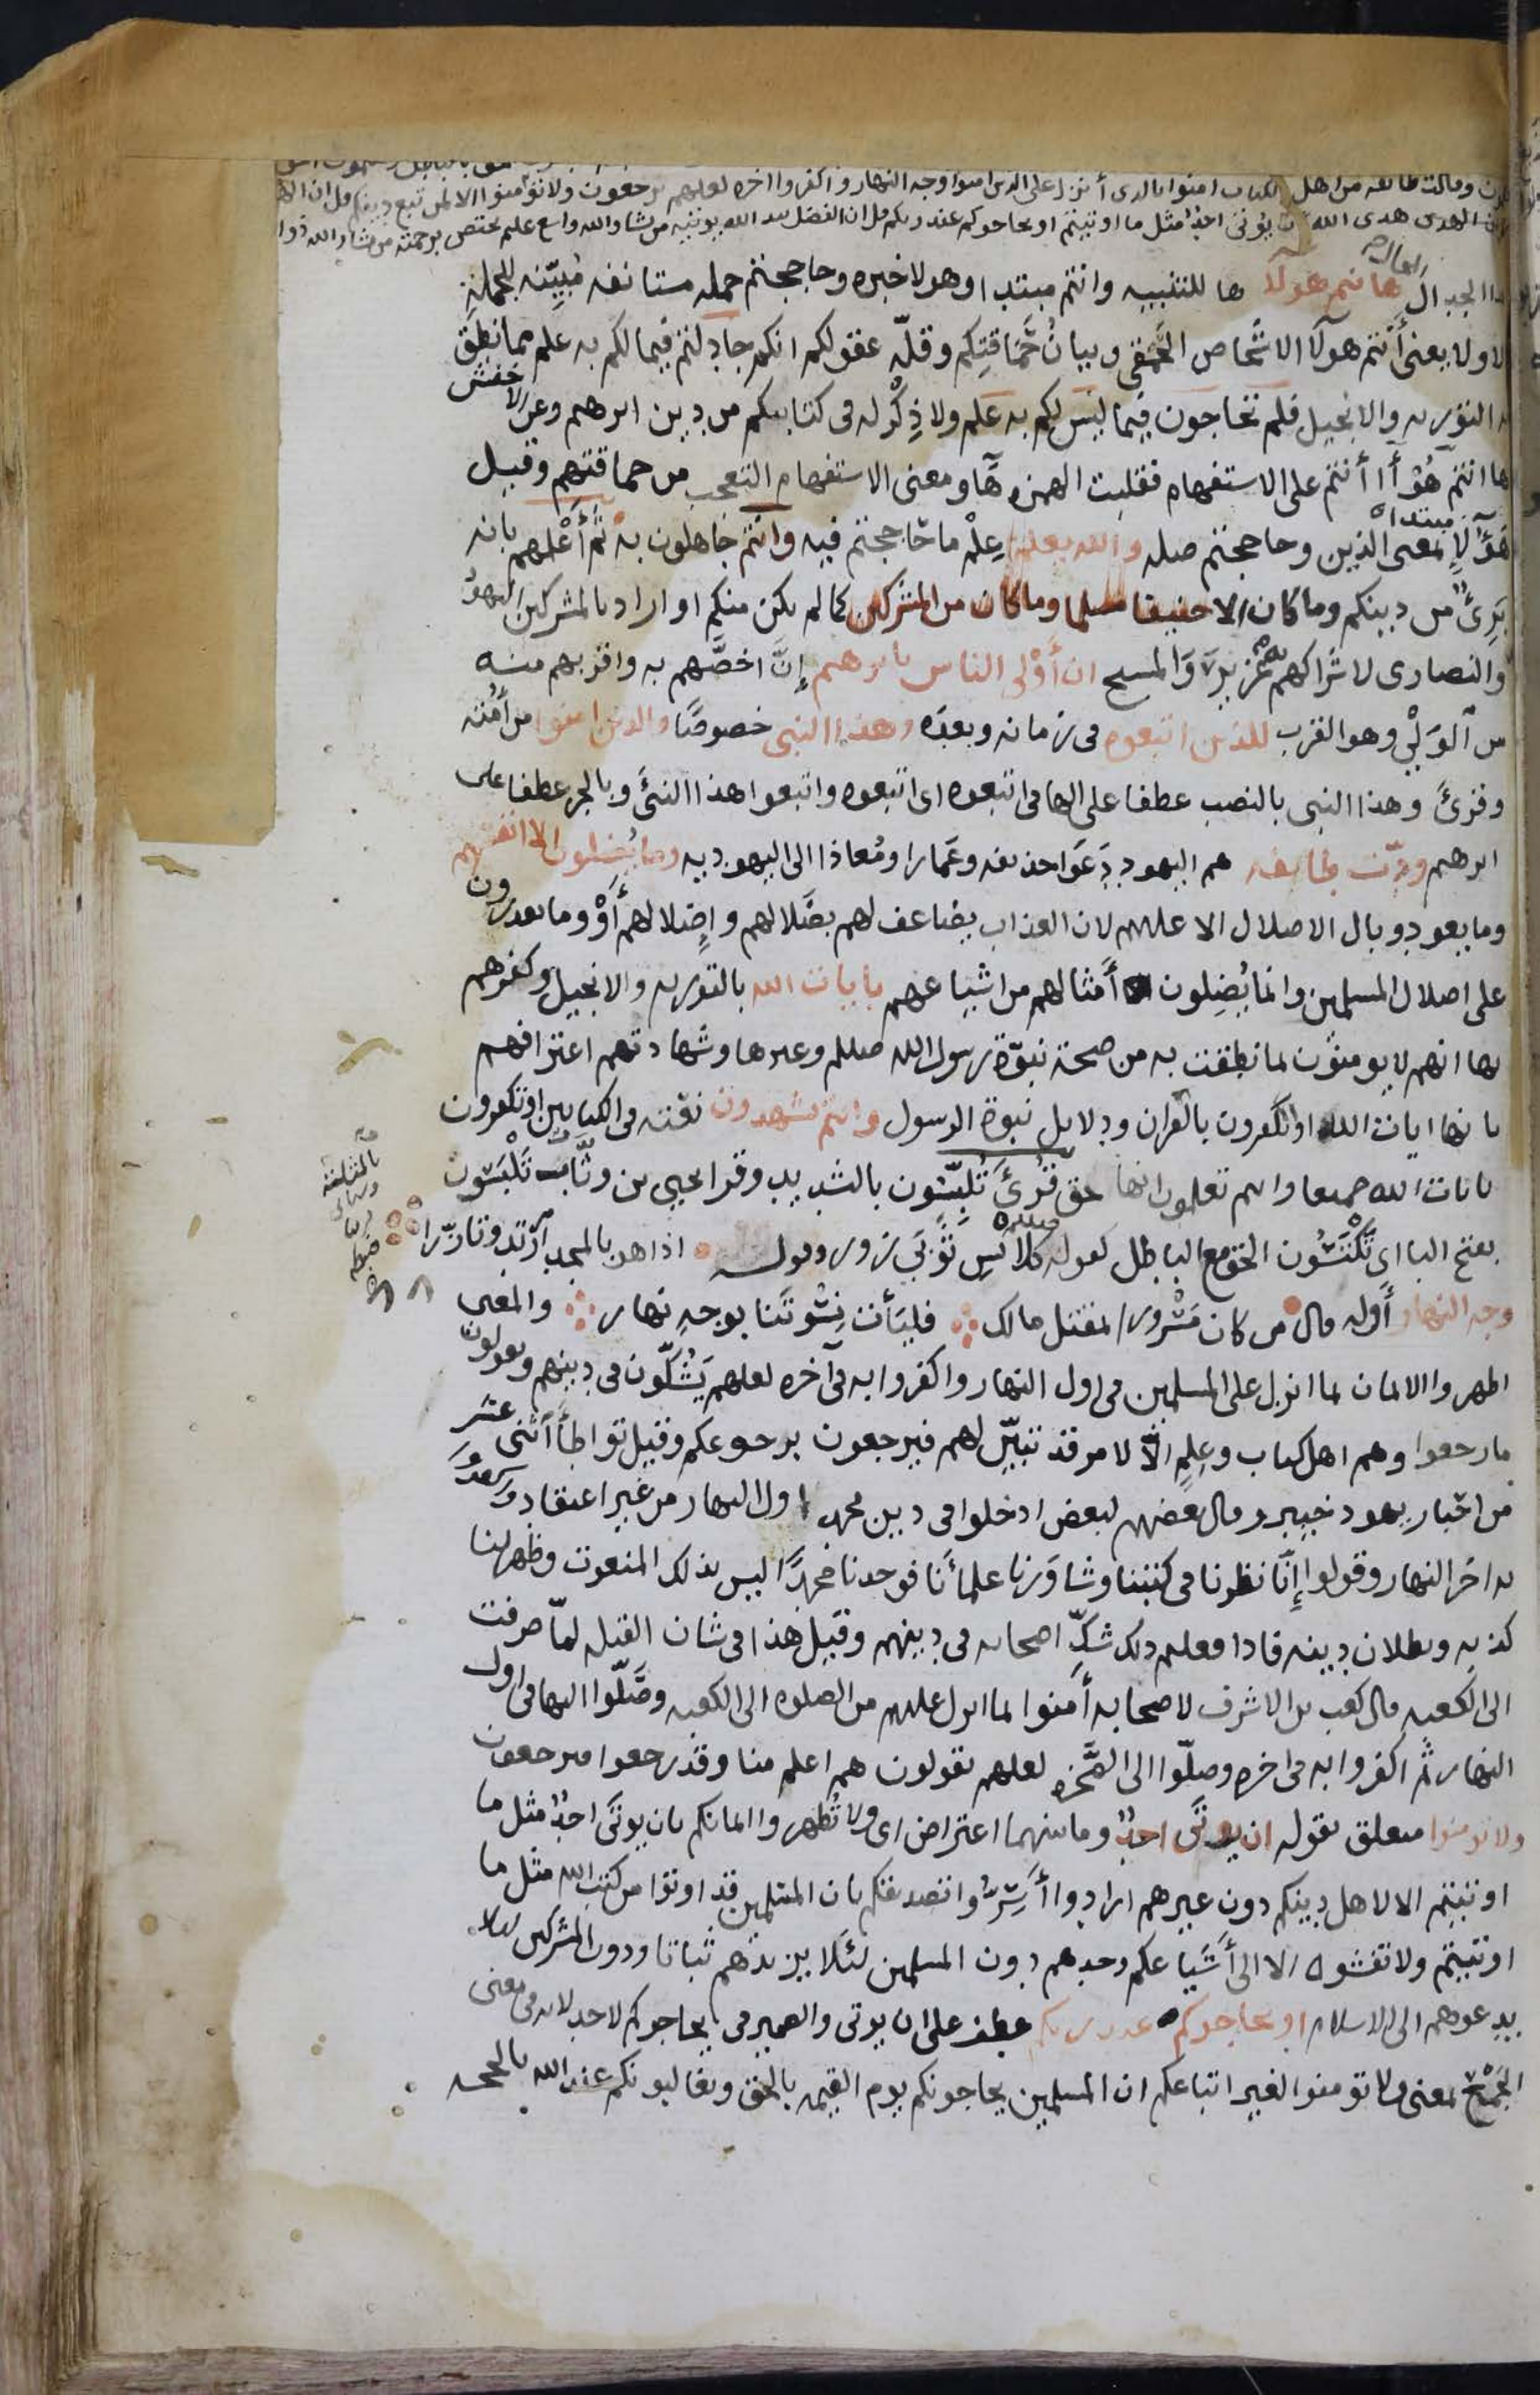 وقالت طائفه من اهل الكتاب امنوا بالدى أنزل على الدين امنوا وجه النهار واكفروا اخره لعلهم يرجعون ولا تؤمنوا الا لمن تبع دينكم قل ان الهدى
الهدى هدى الله ان يؤتى احدٌ مثل ما اوتيتم او يحاجوكم عند ربكم قل ان الفضل بيد الله يوتيه من يشا والله واسع عليم يختص برحمته من يشاء والله ذوا
ها نتم هولا ها للتنبيه وانتم مبتدا وهولا خبره وحاججتم جمله مستانفه مُبيّنه للجملة
الاولا يعنى أنتم هولا الاشخاص الحمقى وبيانُ حَمَاقتِكم وقلّه عقولكم انكم جادلتم فيما لكم به علم مما نطق
به التوريه والانجيل فلم تحاجون فيما ليس لكم به علم ولا ذِكْر له فى كتابيكم من دين ابرهيم وعن الاخفش
ها انتم هُوَ أَأنتم على الاستفهام فقلبت الهمزه هآ ومعنى الاستفهام التعجب من حماقتهم وقيل
هَؤُلَاءِ بمعنى الذين وحاججتم صله والله يعلم عِلْم ما حاججتم فيه وانتم جاهلون به ثم أعلمهم بانه
بَرِىٌ من دينكم وما كان الا حنيفا مسلما وما كان من المشركين كما لم يكن منكم او اراد بالمشركين اليهود
والنصارى لاشراكهم به عُزيرًا والمسيح ان أولى الناس بابرهيم إنَّ اخصَّهم به واقربهم منه
من الوَلْيِ وهو القرب للذين اتبعوه فى زمانه وبعده وهذا النبى خصوصًا والذين امنوا من أمته
وقرئَ وهذا النبى بالنصب عطفا على الها فى اتبعوه اى اتبعوه واتبعوا هذا النبىَّ وبالجر عطفا على
ابرهيم ودّت طايفه هم اليهود دَعَوا حذيفه وعَمارا ومُعاذا الى اليهوديه وما يُضلون الا انفسهم
وما يعود وبال الاضلال الا عليهم لان العذاب يضاعف لهم بضَلالهم وإِضلالهم أَوْ وما يقدرون
على اضلال المسلمين وانما يُضِلون أَمثالهم من اشياعهم بايات الله بالتوريه والانجيل وكفرهم
بها انهم لا يومنون بما نطقت به من صحة نبوّة رسول الله صللم وغيرها وشهادتهم اعترافهم
بانها ايات الله او تكفرون بالقران ودلايل نبوة الرسول وانتم تشهدون نعته فى الكتابين او تكفرون
بايات الله جميعا وانتم تعلمون انها حق قُرئَ تُلبّسُون بالشديد وقرا يحيى بن وثَّاب تَلْبَسُون
بفتح البا اى تَكْتَسُون الحق مع الباطل كقوله كلابِسِ ثَوْبَى زور وقوله اذا هو بالمجد ارْتدى وتازّرا
وجه النهار أوله قال من كان مَسْرورا بمقتل مالك فليَأت نِسْوتَنا بوجهِ نهار والمعنى
اظهروا الايمان بما انزل على المسلمين فى اول النهار واكفروا به فى آخره لعلهم يَشُكّون فى دينهم ويقولون
ما رجعوا وهم اهل كتاب وعِلمٍ الّا لامر قد تبيّن لهم فيرجعون برجوعكم وقيل تواطأ اثنى عشر
من احبار يهود خيبر وقال بعضهم لبعض ادخلوا فى دين محمد اول النهار من غير اعتقاد
به اخر النهار وقولوا إنَّا نظرنا فى كتبنا وشاوَرنا علمأنا فوجدنا محمدًا ليس بذلك المنعوت وظهر لنا
كذبه وبطلان دينه فاذا فعلتم ذلك شكَّ اصحابه فى دينهم وقيل هذا فى شان القبله لمّا صرفت
الى الكعبه قال كعب بن الاشرف لاصحابه أمنوا بما انزل عليهم من الصلوه الى الكعبه وصَلّوا اليها فى اول
النهار ثم اكفروا به فى اخره وصلّوا الى الصَّخره لعلهم يقولون هم اعلم منا وقد رجعوا فيرجعون
ولا تومنوا متعلق بقوله ان يوتَى احدٌ وما بينهما اعتراض اى ولا تُظهروا ايمانكم بان يوتَى احدٌ مثل ما
اوتيتم الا لاهل دينكم دون غيرهم ارادوا أَسِرّوا تصديقكم بان المسلمين قد اوتوا من كتب الله مثل ما
اوتيتم ولا تفشوه الا الى أَشياعكم وحدهم دون المسلمين لئلا يزيدهم ثباتا ودون المشركين ليلا
يدعوهم الى الاسلام او يحاجوكم عند ربكم عطف على ان يوتى والضمير فى يحاجوكم لاحد لانه فى معنى
الجَمْعِ بمعنى ولا تومنوا لغير اتباعكم ان المسلمين يحاجونكم يوم القيمه بالحق ويغالبونكم عند الله بالحجه